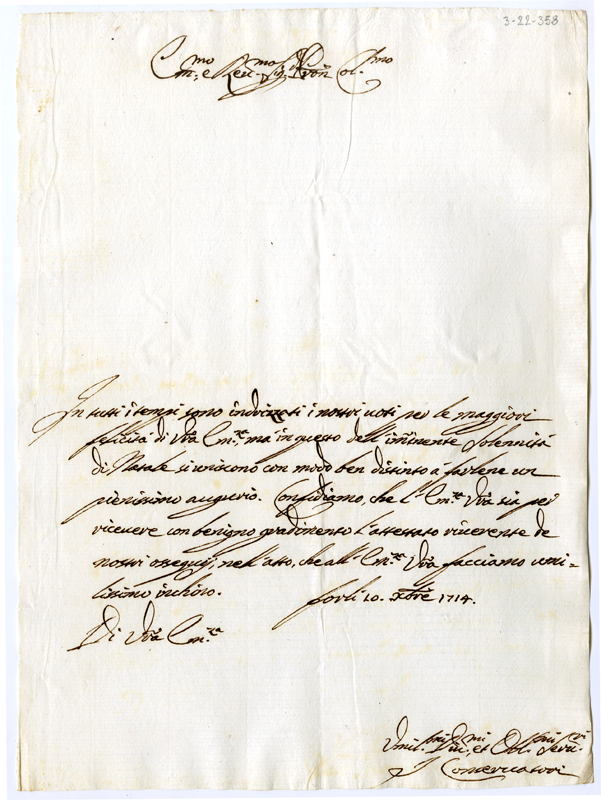 3-22-358
Em.mo e Reu.mo Sig.r Pron Col.mo
In tutti i tempi sono indrizzati i nostri uoti per le maggiori
felicità di Vrā Em.za, ma in questo dell'im̄inente Solennità
di Natale si uniscono con modo ben distinto à farlene un
pienissimo augurio. Confidiamo, che l'Em.za Vrā sia per
riceuere con benigno gradimento l'attestato riuerente de
nostri ossequij, nell'atto, che all'Em.za Vrā facciamo umi-
lissimo inchino. Forlì 10. Xbre 1714.
Di Vrā Em.za
Vmil.mi Diu.mi, et Obl.mi Seru.ri
I Conseruatori